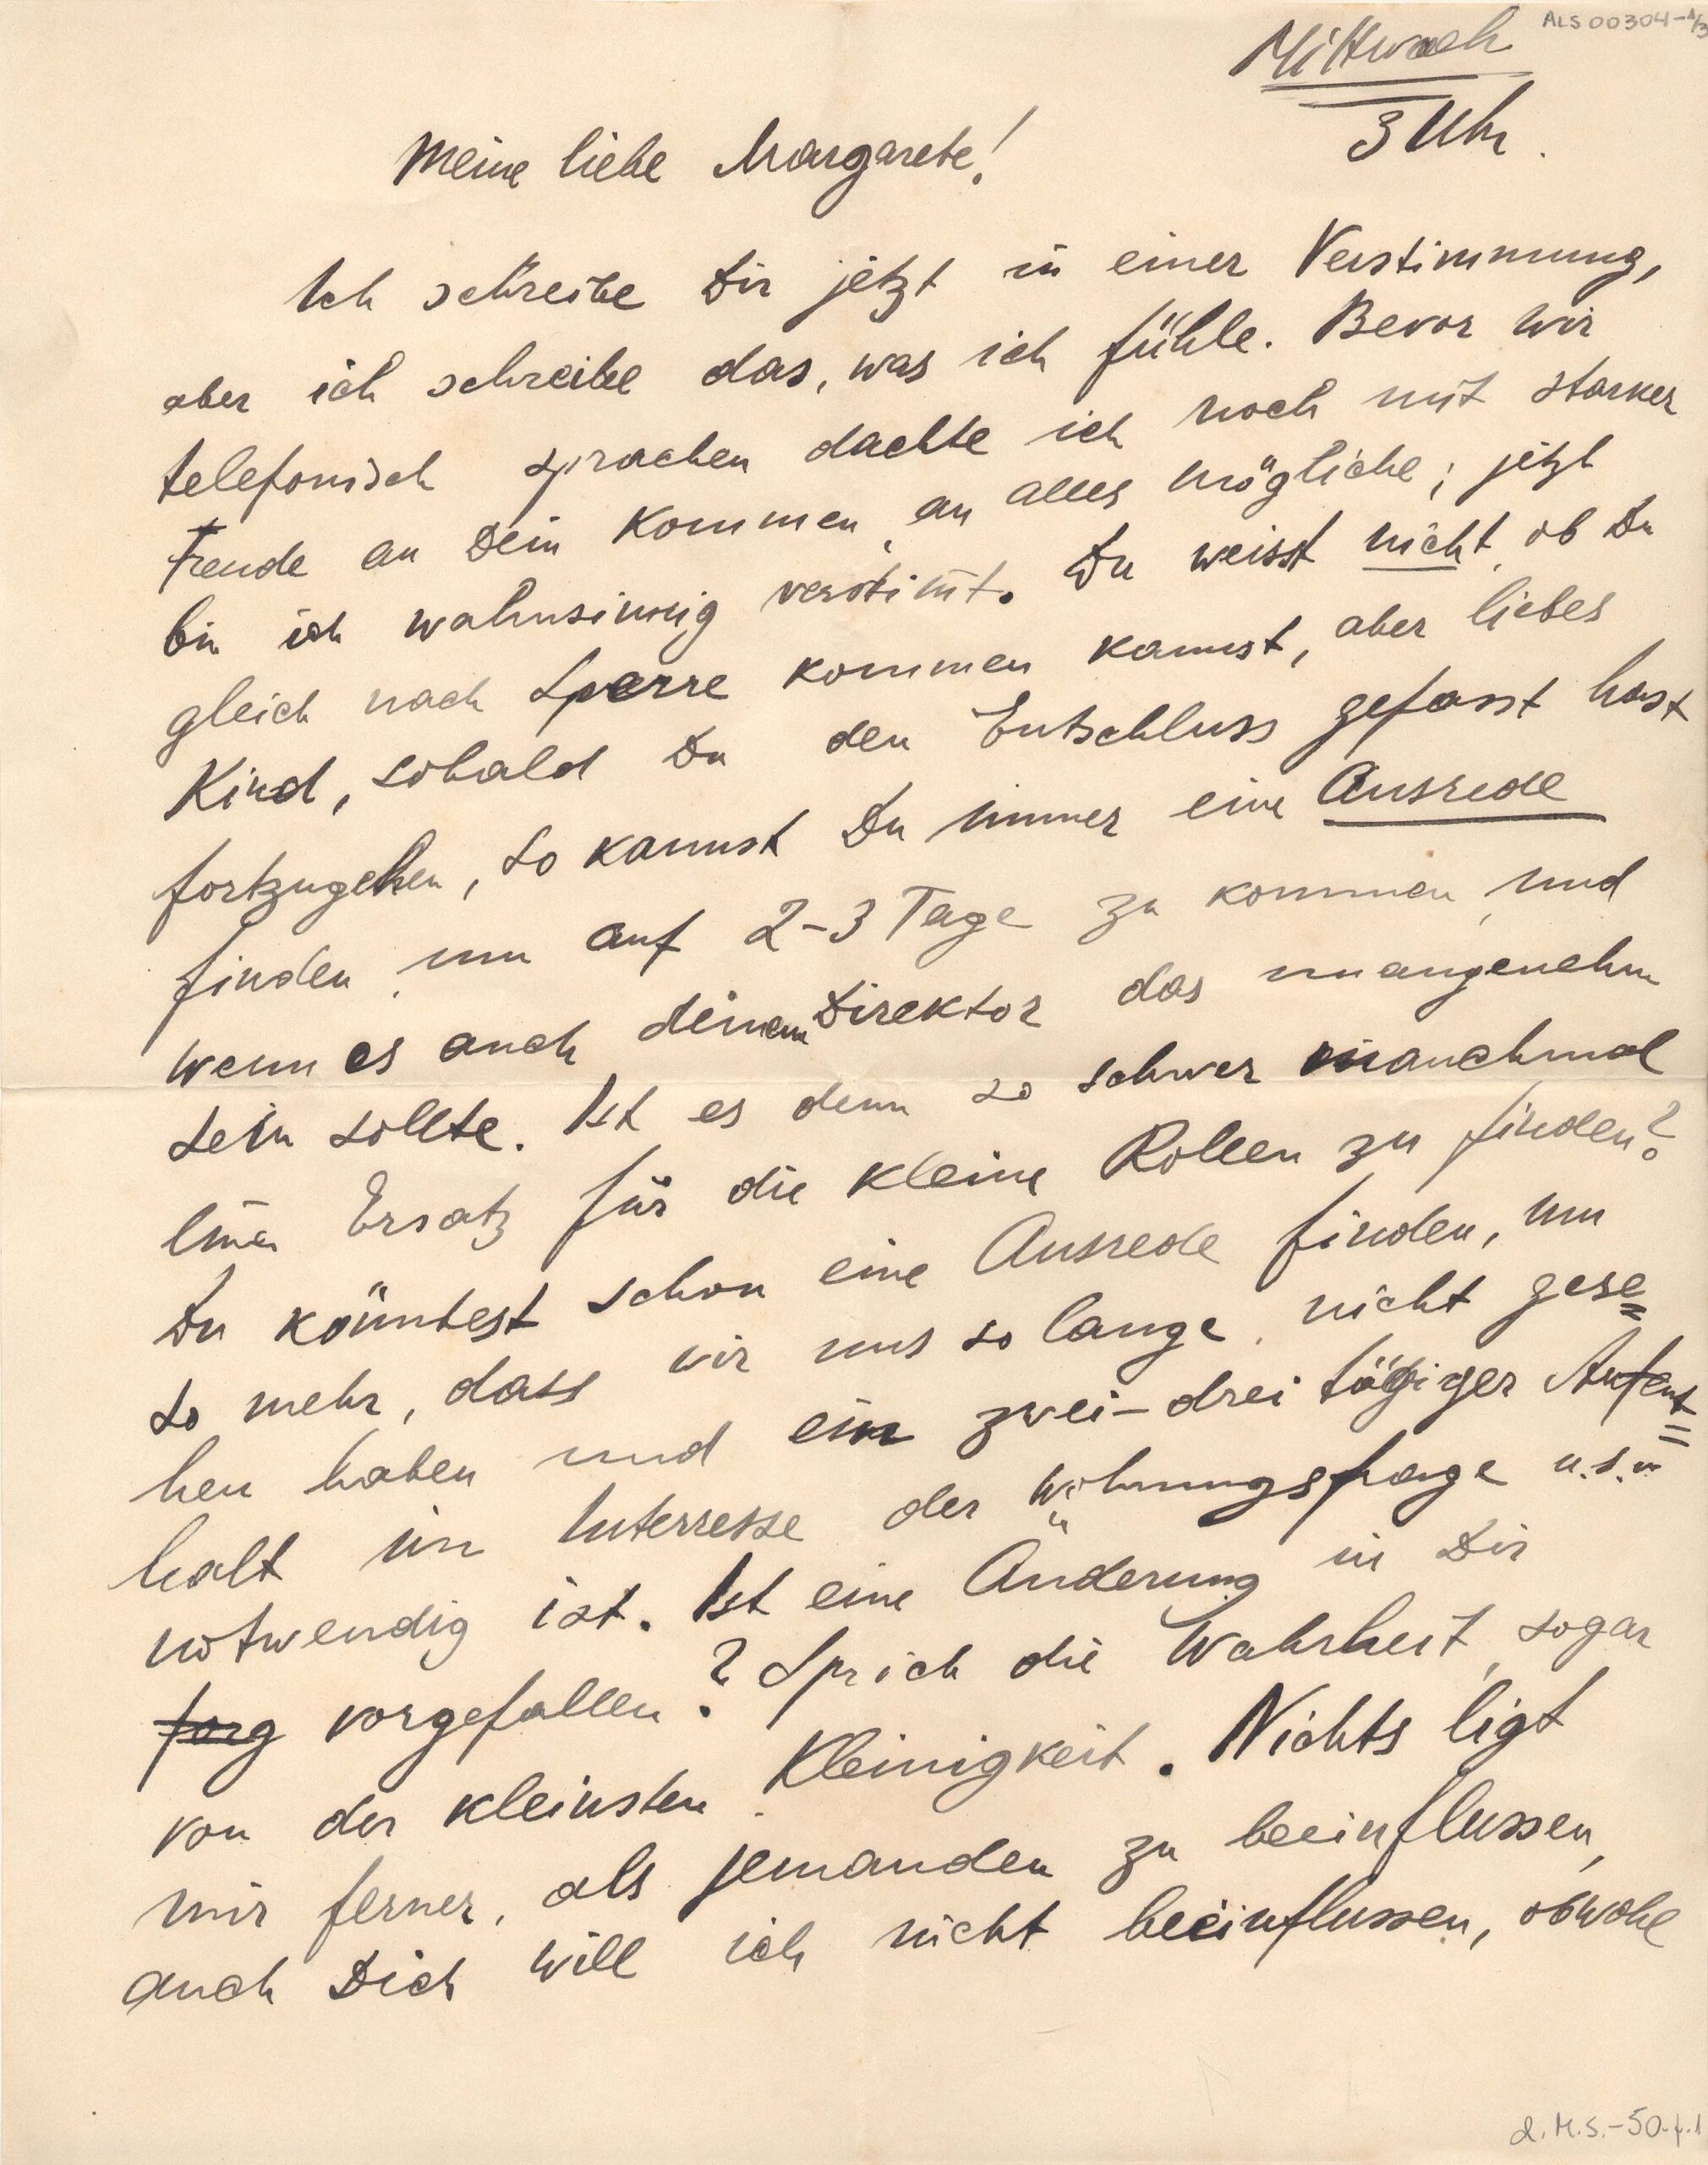 ALS 00304-1/3
Mittwoch
3 Uhr.
Meine liebe Margarete!
Ich schreibe Dir jetzt in einer Verstimmung,
aber ich schreibe das, was ich fühle. Bevor wir
telefonisch sprachen dachte ich noch mit starker
Freude an Dein Kommen, an alles mögliche; jetzt
bin ich wahnsinnig verstimt. Du weisst nicht, ob Du
gleich nach Sperre kommen kannst, aber liebes
Kind, sobald Du den Entschluss gefasst hast
fortzugehen, so kannst Du immer eine Ausrede
finden, um auf 2-3 Tage zu kommen, und
wenn es auch deinem Direktor das unangenehm
sein sollte. Ist es denn so schwer manchmal
Ersatz für die kleine Rollen zu finden?
Du könntest schon eine Ausrede finden, um
so mehr, dass wir uns so lange nicht gese=
hen haben und ein zwei-drei tägiger Aufent=
halt im Interresse der Wohnungsfrage u.s.w
notwendig ist. Ist eine Änderung in Dir
forg vorgefallen? Sprich die Wahrheit, sogar
von der kleinsten Kleinigkeit. Nichts ligt
mir ferner, als jemanden zu beeinflussen,
auch Dich will ich nicht beeinflussen, obwohl
2.M.S.-50.f.1